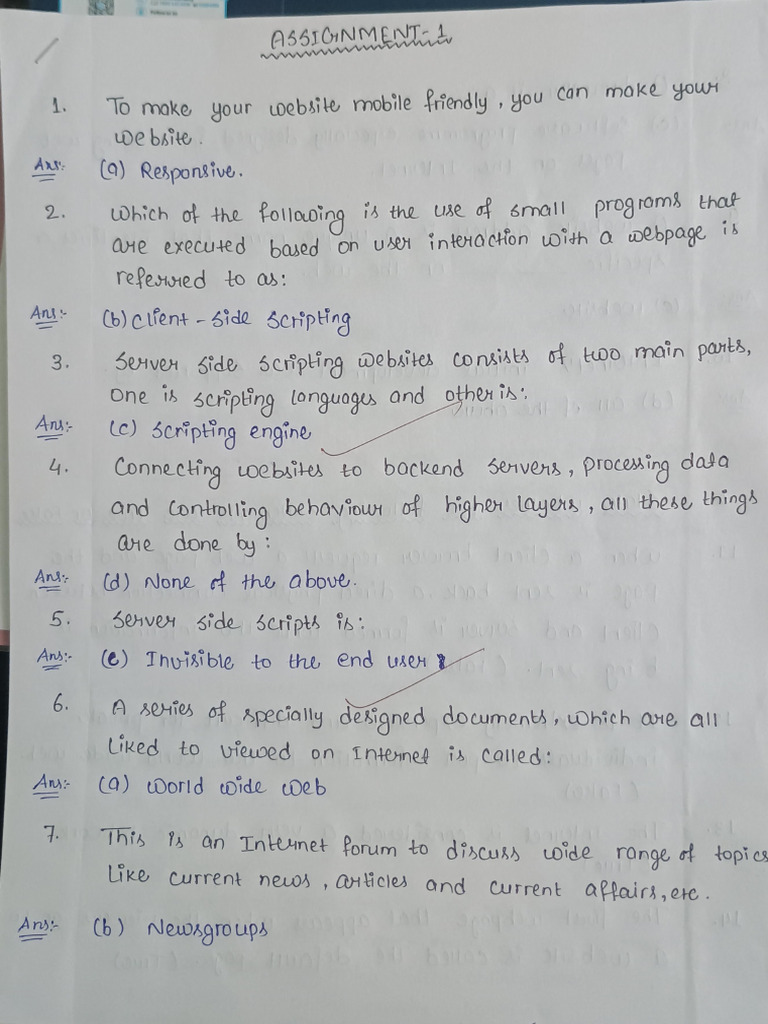 ASSIGNMENT-1
1. To make your website mobile friendly, you can make your
website.
Ans:- (a) Responsive.
2. Which of the following is the use of small programs that
are executed based on user interaction with a webpage is
referred to as:
Ans:- (b) Client-Side Scripting
3. Server side scripting websites consists of two main parts,
one is scripting languages and other is:
Ans:- (c) Scripting engine
4. Connecting websites to backend servers, processing data
and controlling behaviour of higher layers, all these things
are done by:
Ans:- (d) None of the above.
5. Server side scripts is:
Ans:- (e) Invisible to the end user
6. A series of specially designed documents, which are all
liked to viewed on Internet is called:
Ans:- (a) World wide web
7. This is an Internet forum to discuss wide range of topics
Like current news, articles and current affairs, etc.
Ans:- (b) Newsgroups